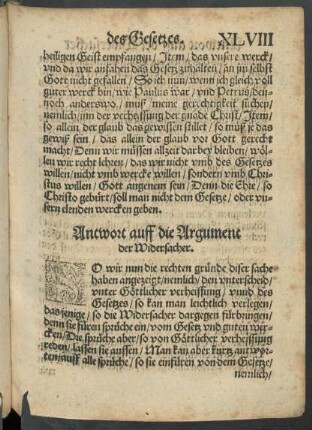 des Gesetzes. XLVIII
heiligen Geist empfangen/ Item/ das vnsere werck/
vnd da wir anfahen das Gesetz zuhalten/ an jm selbst
Gott nicht gefallen/ So ich nun/ wenn ich gleich voll
guter werck bin/ wie Paulus war/ vnd Petrus/ den-
noch anderswo/ muß meine gerechtigkeit suchen/
nemlich/ inn der verheissung der gnade Christi/ Item/
so allein der glaub das gewissen stillet/ so muß je das
gewiß sein/ das allein der glaub vor Gott gerecht
macht/ Denn wir müssen allzeit darbey bleiben/ wöl-
len wir recht lehren/ das wir nicht vmb des Gesetzes
willen/ nicht vmb wercke willen/ sondern vmb Chri-
stus willen/ Gott angenem sein/ Denn die Ehre/ so
Christo gebürt/ soll man nicht dem Gesetze/ oder vn-
sern elenden wercken geben.
Antwort auff die Argument
der Widersacher.
SO wir nun die rechten gründe diser sache
haben angezeigt/ nemlich/ den vnterscheid/
vnter Göttlicher verheissung/ vnnd des
Gesetzes/ so kan man leichtlich verlegen/
dasjenige/ so die Widersacher dargegen fürbrungen/
denn sie füren sprüche ein/ vom Gesetz vnd guten wer-
cken/ Die sprüche aber/ so von Göttlicher verheissung
reden/ lassen sie aussen/ Man kan aber kurtz antwor-
ten/ auff alle sprüche/ so sie einfüren von dem Gesetze/
nemlich/